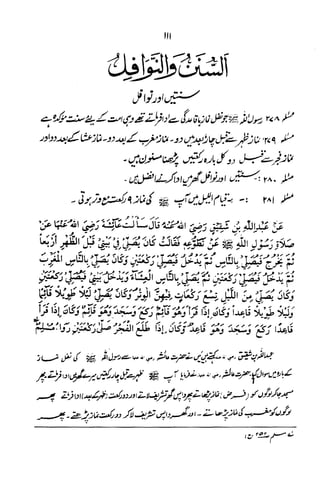 ۱۱۱
اَلسُّنَنُ وَالنَّوَافِلُ
سنتیں اور نوافل
مسئلہ ۲۷۸ رسول اللہ ﷺ جو نفل نماز باقاعدگی سے ادا فرماتے تھے وہی امت کے لیے سنت مؤکدہ ہے
مسئلہ ۲۷۹ نماز ظہر سے قبل چار، بعد میں دو۔ نماز مغرب کے بعد دو۔ نماز عشا کے بعد دو اور
نماز فجر سے قبل دو کل بارہ رکعتیں پڑھنا مسنون ہیں۔
مسئلہ ۲۸۰ سنتیں اور نوافل گھر میں ادا کرنے افضل ہیں۔
مسئلہ ۲۸۱ قیام اللیل میں آپ ﷺ کی نماز ۹ رکعت مع وتر ہوتی۔
عَنْ عَبْدِاللهِ بْنِ شَقِيْقٍ رَضِيَ اللهُ عَنْهُ قَالَ سَأَلْتُ عَائِشَةَ رَضِيَ اللهُ عَنْهَا عَنْ
صَلَاةِ رَسُوْلِ اللهِ ﷺ عَنْ تَطَوُّعِهِ فَقَالَتْ كَانَ يُصَلِّيْ فِيْ بَيْتِيْ قَبْلَ الظُّهْرِ أَرْبَعًا
ثُمَّ يَخْرُجُ فَيُصَلِّيْ بِالنَّاسِ ثُمَّ يَدْخُلُ فَيُصَلِّيْ رَكْعَتَيْنِ وَكَانَ يُصَلِّيْ بِالنَّاسِ الْمَغْرِبَ
ثُمَّ يَدْخُلُ فَيُصَلِّيْ رَكْعَتَيْنِ ثُمَّ يُصَلِّيْ بِالنَّاسِ الْعِشَاءَ وَيَدْخُلُ بَيْتِيْ فَيُصَلِّيْ رَكْعَتَيْنِ
وَكَانَ يُصَلِّيْ مِنَ اللَّيْلِ تِسْعَ رَكَعَاتٍ فِيْهِنَّ الْوِتْرُ وَكَانَ يُصَلِّيْ لَيْلًا طَوِيْلًا قَائِمًا
وَلَيْلًا طَوِيْلًا قَاعِدًا وَكَانَ إِذَا قَرَأَ وَهُوَ قَائِمٌ رَكَعَ وَسَجَدَ وَهُوَ قَائِمٌ وَكَانَ إِذَا قَرَأَ
قَاعِدًا رَكَعَ وَسَجَدَ وَهُوَ قَاعِدٌ وَكَانَ إِذَا طَلَعَ الْفَجْرُ صَلّٰى رَكْعَتَيْنِ رَوَاهُ مُسْلِمٌ
عبداللہ بن شقیق کہتے ہیں میں نے حضرت عائشہ سے رسول اللہ ﷺ کی نفل نماز
کے بارہ میں سوال کیا حضرت عائشہ نے فرمایا آپ ﷺ ظہر سے قبل چار رکعتیں میرے گھر میں ادا فرماتے پھر
مسجد جا کر لوگوں کو (فرض) نماز پڑھاتے پھر واپس گھر تشریف لاتے اور دو رکعت (ظہر کے بعد) ادا فرماتے پھر
لوگوں کو مغرب کی نماز پڑھاتے۔ اور گھر واپس تشریف لا کر دو رکعت نماز پڑھتے۔ پھر